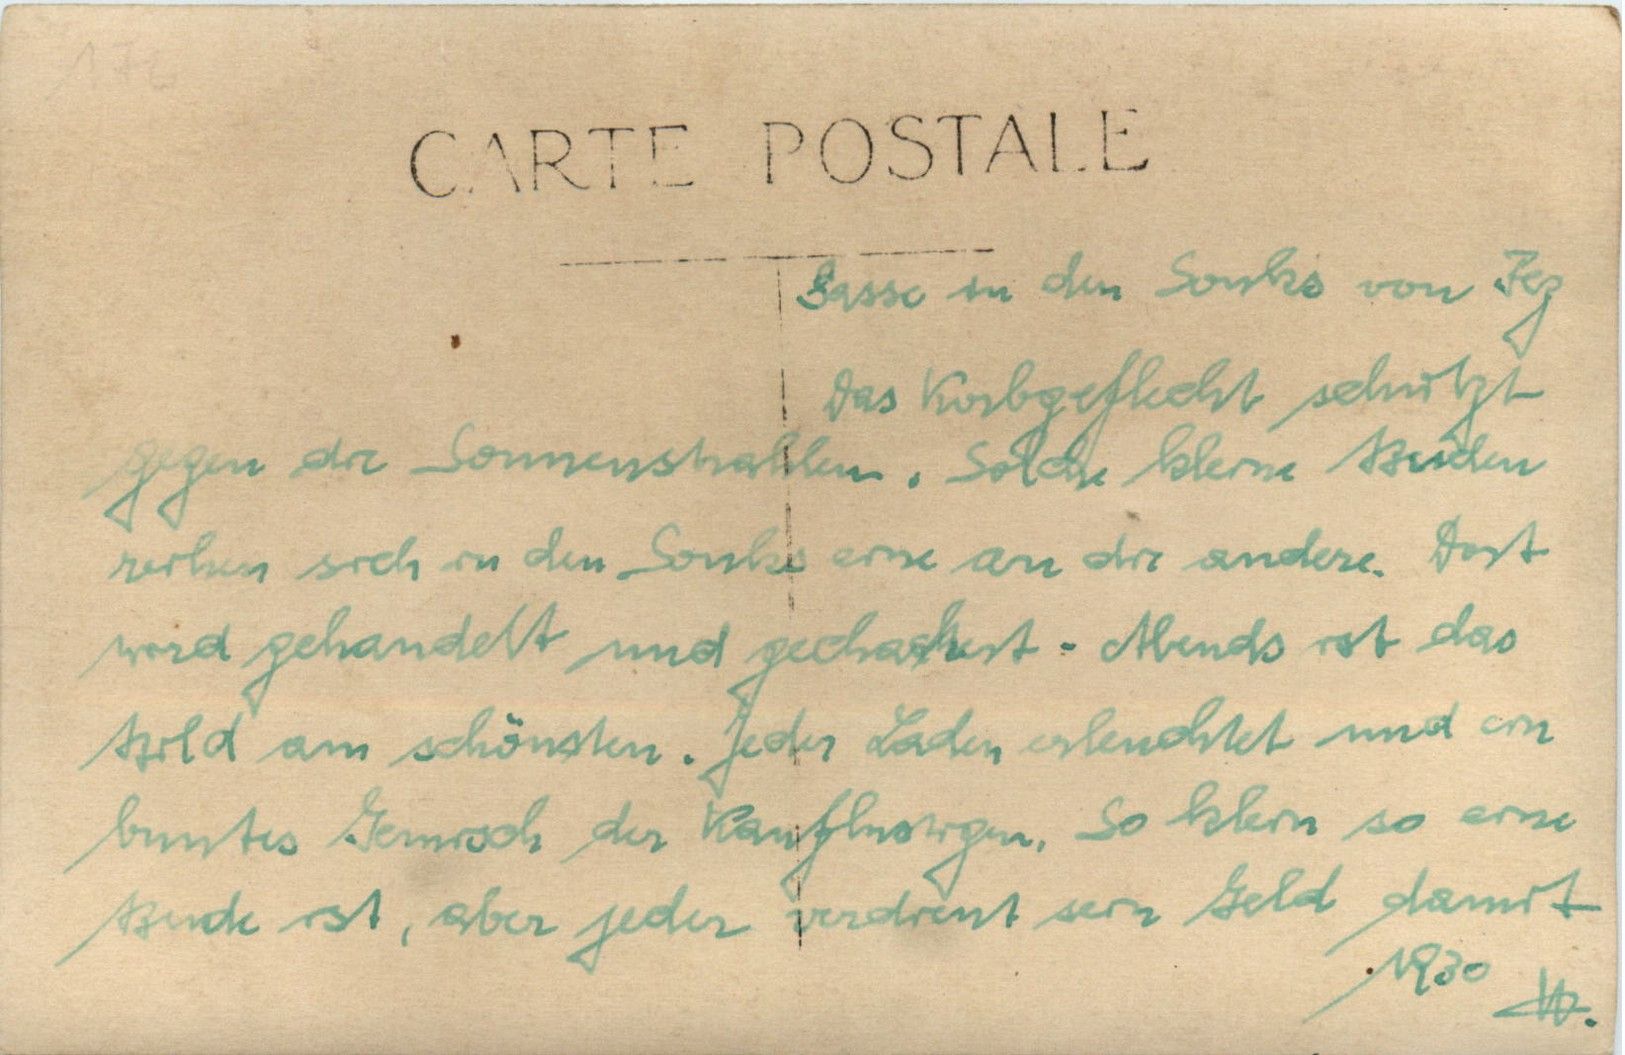 172
CARTE POSTALE
Gasse in den Souks von Fez
Das Korbgeflecht schützt
gegen die Sonnenstrahlen. Solche kleine Buden
reihen sich in den Souks eine an die andere. Dort
wird gehandelt und geschachert. Abends ist das
Bild am schönsten. Jeder Laden erleuchtet und ein
buntes Gemisch der Kauflustigen. So klein so eine
Bude ist, aber jeder verdient sein Geld damit
1930